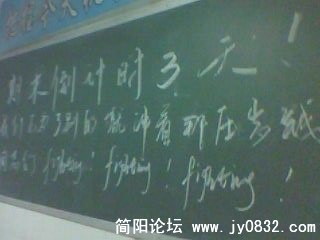 期末倒计时3天！
我们还要了别的 就冲着那压岁钱
同志们 fighting! fighting! fighting!
简阳论坛 www.jy0832.com